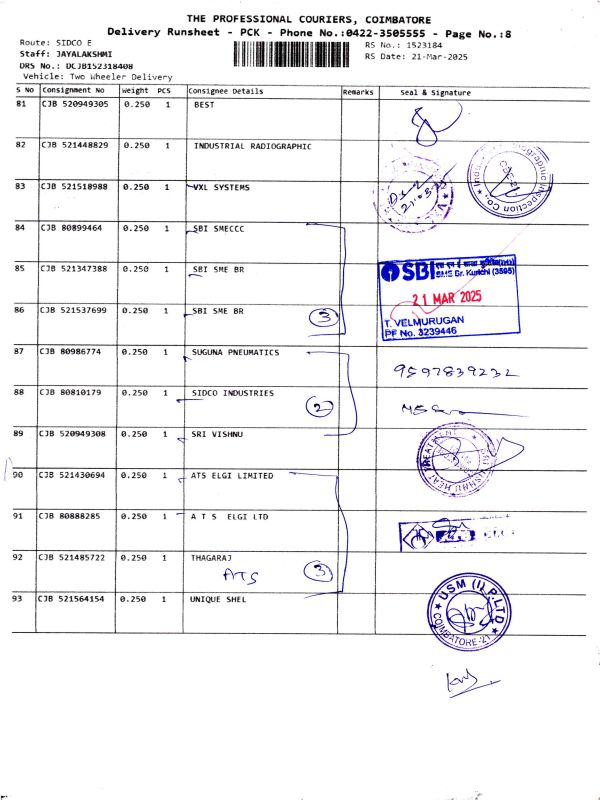 THE PROFESSIONAL COURIERS, COIMBATORE
Delivery Runsheet - PCK - Phone No.:0422-3505555 - Page No.:8
Route: SIDCO E
RS No.: 1523184
Staff: JAYALAKSHMI
RS Date: 21-Mar-2025
DRS No.: DCJB152318408
Vehicle: Two Wheeler Delivery
S No Consignment No Weight PCS Consignee Details Remarks Seal & Signature
81 CJB 520949305 0.250 1 BEST
82 CJB 521448829 0.250 1 INDUSTRIAL RADIOGRAPHIC
83 CJB 521518988 0.250 1 VXL SYSTEMS
84 CJB 80899464 0.250 1 SBI SMECCC
85 CJB 521347388 0.250 1 SBI SME BR
SBI
SME Br. Kurichi (3595)
21 MAR 2025
86 CJB 521537699 0.250 1 SBI SME BR
3
T. VELMURUGAN
PF No. 3239446
87 CJB 80986774 0.250 1 SUGUNA PNEUMATICS
9597839232
88 CJB 80810179 0.250 1 SIDCO INDUSTRIES
2
89 CJB 520949308 0.250 1 SRI VISHNU
90 CJB 521430694 0.250 1 ATS ELGI LIMITED
91 CJB 80888285 0.250 1 A T S ELGI LTD
92 CJB 521485722 0.250 1 THAGARAJ
ATS
3
93 CJB 521564154 0.250 1 UNIQUE SHEL
USM (I) P.LTD
COIMBATORE-21